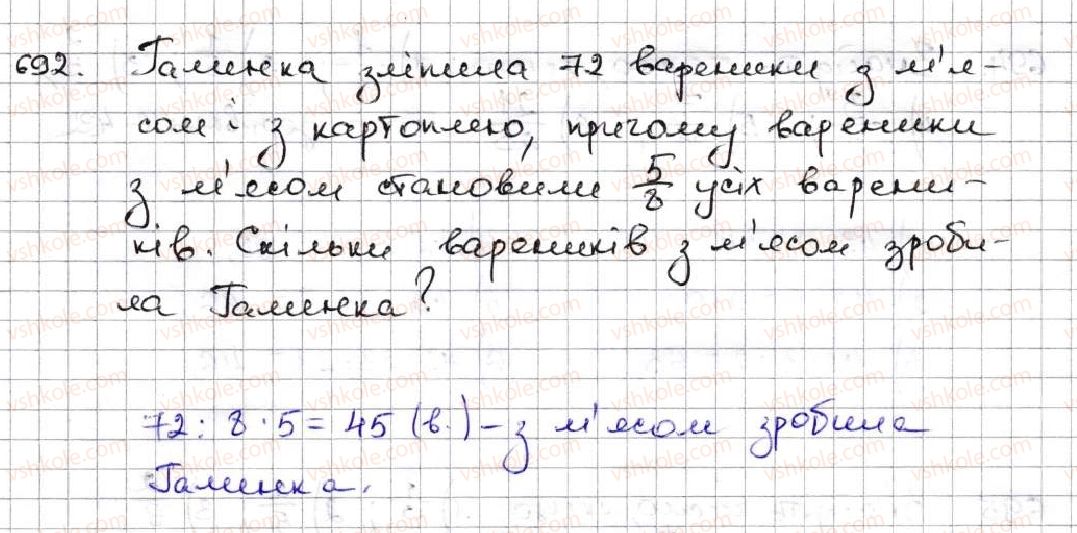 692. Галинка зліпила 72 вареники з м'я-
сом і з картоплею, причому вареники
з м'ясом становили 5/8 усіх варени-
ків. Скільки вареників з м'ясом зроби-
ла Галинка?
72 : 8 · 5 = 45 (в.) – з м'ясом зробила
Галинка.